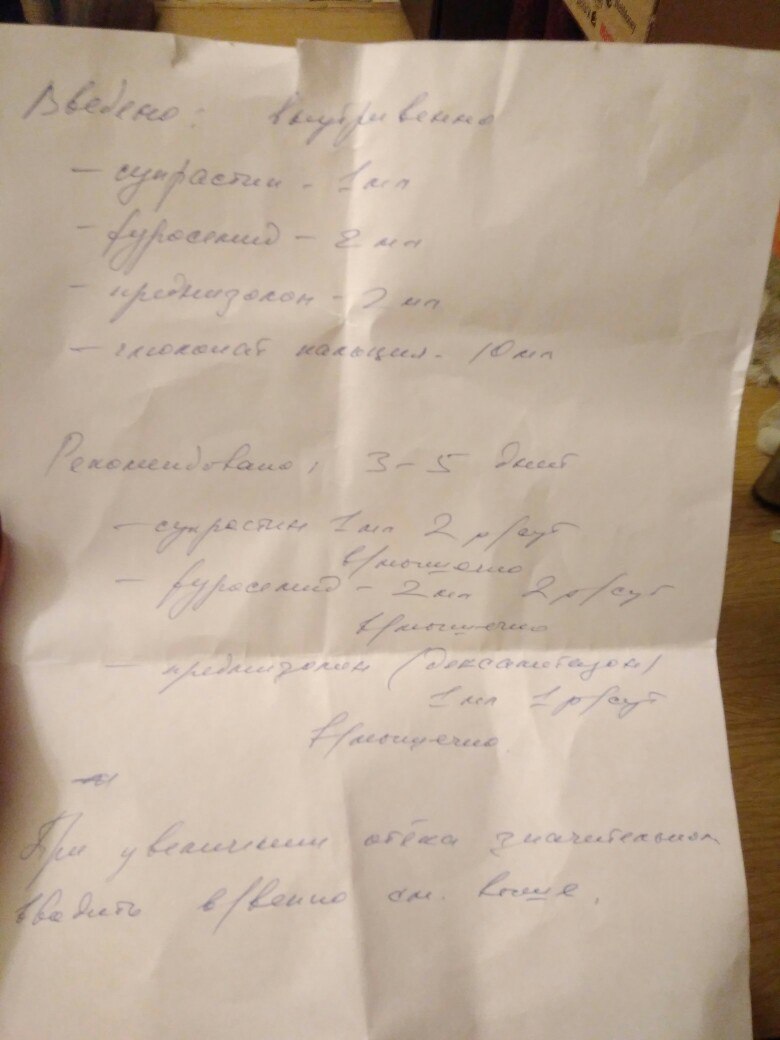 Введено: внутривенно
– супрастин – 1 мл
– фуросемид – 2 мл
– преднизолон – 2 мл
– глюконат кальция – 10 мл
Рекомендовано: 3–5 дней
– супрастин 1 мл 2 р/сут
в/мышечно
– фуросемид – 2 мл 2 р/сут
в/мышечно
– преднизолон (дексаметазон)
1 мл 1 р/сут
в/мышечно
При увеличении отёка значительном
вводить в/венно см. выше.